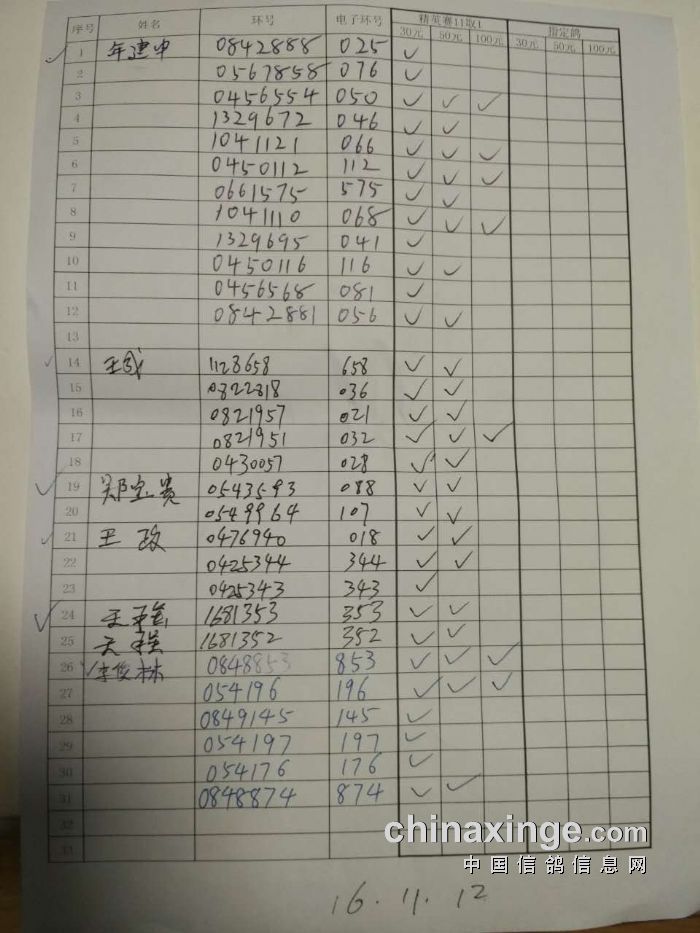 序号 姓名 环号 电子环号 精英赛11取1 指定鸽
30元 50元 100元 30元 50元 100元
✓ 1 年建中 0842888 025 ✓
2 0567858 076 ✓
3 0456554 050 ✓ ✓ ✓
4 1329672 046 ✓ ✓
5 1041121 066 ✓ ✓ ✓
6 0450112 112 ✓ ✓ ✓
7 0661575 575 ✓ ✓
8 1041110 068 ✓ ✓ ✓
9 1329695 041 ✓
10 0450116 116 ✓ ✓
11 0456568 081 ✓
12 0842881 056 ✓ ✓
13
✓ 14 王成 1123658 658 ✓ ✓
15 0822818 036 ✓ ✓
16 0821957 021 ✓ ✓
17 0821951 032 ✓ ✓ ✓
18 0430057 028 ✓ ✓
✓ 19 郑宝贵 0543593 088 ✓ ✓
20 0549964 107 ✓ ✓
✓ 21 王政 0476940 018 ✓ ✓
22 0425344 344 ✓ ✓
23 0425343 343 ✓
✓ 24 1681353 353 ✓ ✓
25 1681352 352 ✓ ✓
26 ✓ 李俊林 0848853 853 ✓ ✓ ✓
27 054196 196 ✓ ✓ ✓
28 0849145 145 ✓
29 054197 197 ✓
30 054176 176 ✓
31 0848874 874 ✓ ✓
32
33
chinaxinge.com
中国信鸽信息网
16.11.12